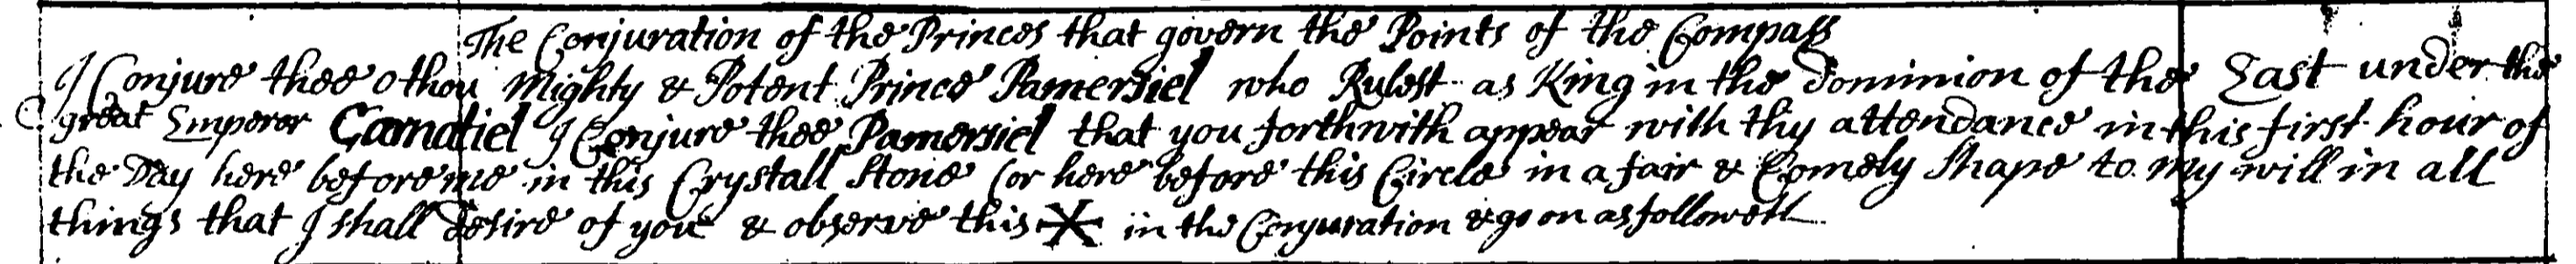 The Conjuration of the Princes that govern the Points of the Compass
I Conjure thee o thou Mighty & Potent Prince Pamersiel who Rulest as King in the dominion of the East under the
great Emperor Carnatiel I Conjure thee Pamersiel that you forthwith appear with thy attendance in this first hour of
the Day here before me in this Crystall Stone (or here before this Circle in a fair & Comely Shape to my will in all
things that I shall desire of you & observe this in the Conjuration & go on as followeth